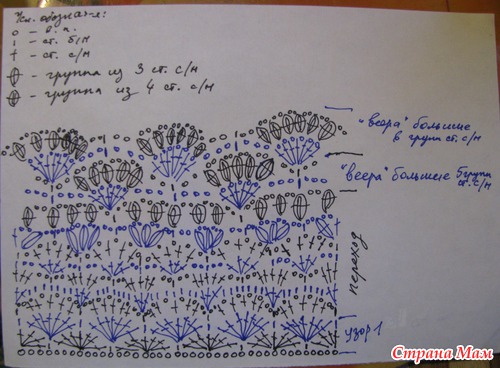 Усл. обознач-я:
о - в. п.
ı - ст. б/н
† - ст. с/н
- группа из 3 ст. с/н
- группа из 4 ст. с/н
"веера" большие
в групп ст. с/н
"веера" большие 5 групп
ст. с/н
переход
узор 1
Страна Мам